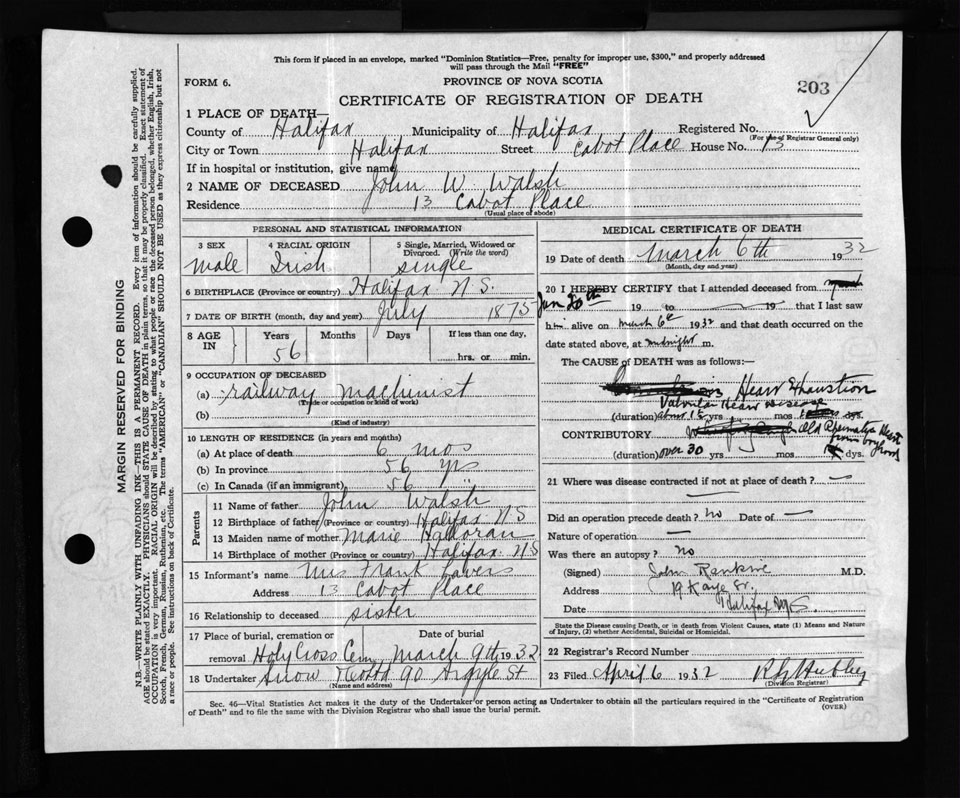 This form if placed in an envelope, marked "Dominion Statistics—Free, penalty for improper use, $300," and properly addressed
will pass through the Mail "FREE"
FORM 6.
PROVINCE OF NOVA SCOTIA
203
CERTIFICATE OF REGISTRATION OF DEATH
1 PLACE OF DEATH—
County of Halifax Municipality of Halifax Registered No.
(For use of Registrar General only)
City or Town Halifax Street Cabot Place House No. 13
If in hospital or institution, give name
2 NAME OF DECEASED John W Walsh
Residence 13 Cabot Place
(Usual place of abode)
PERSONAL AND STATISTICAL INFORMATION
3 SEX 4 RACIAL ORIGIN 5 Single, Married, Widowed or Divorced. (Write the word)
Male Irish single
6 BIRTHPLACE (Province or country) Halifax N S.
7 DATE OF BIRTH (month, day and year) July 1875
8 AGE IN Years Months Days If less than one day,
56 hrs. or min.
9 OCCUPATION OF DECEASED
(a) railway machinist
(Trade or occupation or kind of work)
(b)
(Kind of industry)
10 LENGTH OF RESIDENCE (in years and months)
(a) At place of death 6 mos
(b) In province 56 yrs
(c) In Canada (if an immigrant) 56 "
Parents
11 Name of father John Walsh
12 Birthplace of father (Province or country) Halifax N S
13 Maiden name of mother Marie Halloran
14 Birthplace of mother (Province or country) Halifax N S
15 Informant's name Mrs Frank Lavers
Address 13 Cabot Place
16 Relationship to deceased sister
17 Place of burial, cremation or removal Date of burial
Holy Cross Cem March 9th 1932
18 Undertaker Snow 90 Argyle St
(Name and address)
MEDICAL CERTIFICATE OF DEATH
19 Date of death March 6th 1932
(Month, day and year)
20 I HEREBY CERTIFY that I attended deceased from
Jan 20th 19 to 19 that I last saw
him alive on March 6th 1932 and that death occurred on the
date stated above, at midnight m.
The CAUSE of DEATH was as follows:—
Heart Exhaustion
Valvular Heart disease
(duration) about 15 yrs mos dys.
CONTRIBUTORY Old Rheumatic Heart
from boyhood
(duration) over 30 yrs mos dys.
21 Where was disease contracted if not at place of death? —
Did an operation precede death? no Date of —
Nature of operation —
Was there an autopsy? no
(Signed) John Rankine M.D.
Address 19 Kaye St.
Date Halifax N.S.
State the Disease causing Death, or in death from Violent Causes, state (1) Means and Nature
of Injury, (2) whether Accidental, Suicidal or Homicidal.
22 Registrar's Record Number
23 Filed April 6 1932
(Division Registrar)
Sec. 46—Vital Statistics Act makes it the duty of the Undertaker or person acting as Undertaker to obtain all the particulars required in the "Certificate of Registration
of Death" and to file the same with the Division Registrar who shall issue the burial permit.
(OVER)
MARGIN RESERVED FOR BINDING
N.B.—WRITE PLAINLY WITH UNFADING INK—THIS IS A PERMANENT RECORD. Every item of information should be carefully supplied.
AGE should be stated EXACTLY. PHYSICIANS should STATE CAUSE OF DEATH in plain terms, so that it may be properly classified. Exact statement of
OCCUPATION is very important. RACIAL ORIGIN will be described by stating to what people or race the deceased person belonged, whether English, Irish,
Scotch, French, German, Russian, Ruthenian, etc. The terms "AMERICAN" or "CANADIAN" SHOULD NOT BE USED as they express citizenship but not
a race or people. See instructions on back of Certificate.